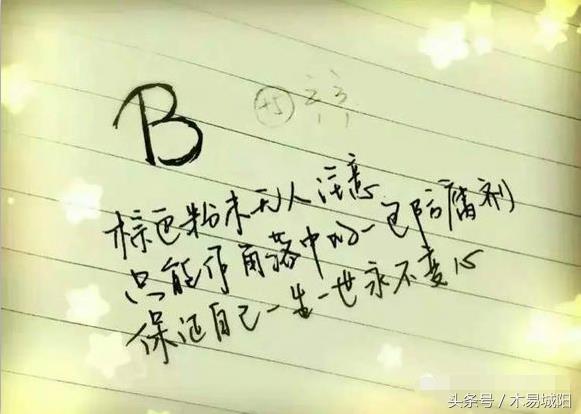 B
+5 2 3
棕色粉末无人注意
只能作角落中的一包防腐剂
保证自己一生一世永不变心
头条号 / 木易城阳